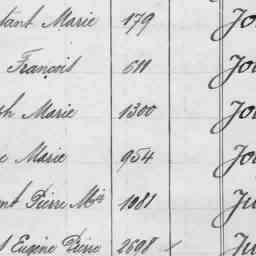 tant Marie 179 Jo
François 611 Jo
ph Marie 1300 Jo
e Marie 954 Jo
ent Pierre Mie 1081 Ju
t Eugène Pierre 2698 Ju